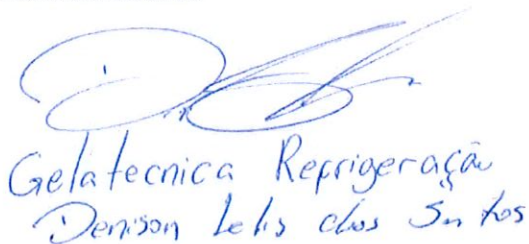 Gelatecnica Refrigeração
Denison Lelis dos Santos